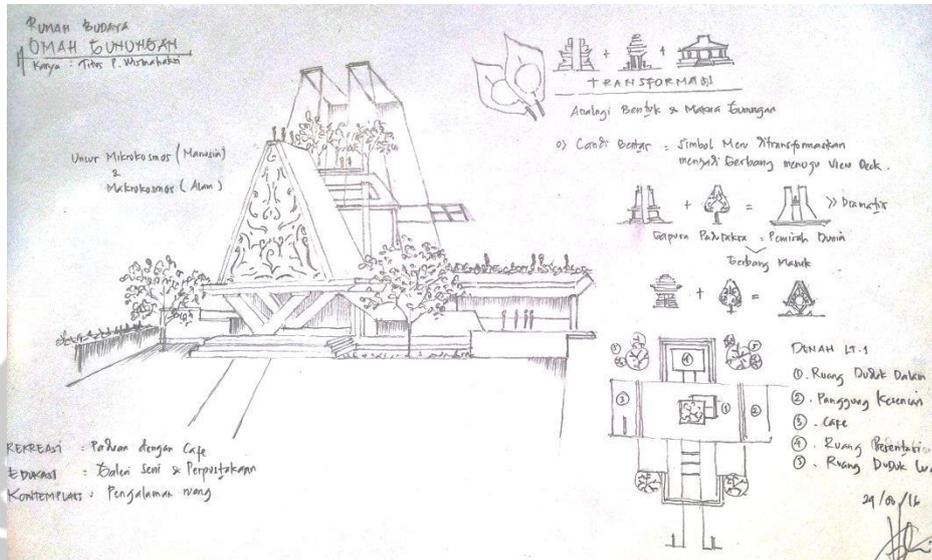 RUMAH BUDAYA
OMAH GUNUNGAN
Karya : Titus P.
Unsur Mikrokosmos (Manusia)
&
Makrokosmos (Alam)
REKREASI : Paduan dengan Cafe
EDUKASI : Galeri Seni & Perpustakaan
KONTEMPLASI : Pengalaman ruang
+ +
TRANSFORMASI
Analogi Bentuk & Makna Gunungan
Candi Bentar = Simbol Meru ditransformasikan
menjadi Gerbang menuju View Deck.
+ = >> Dramatis
Gapura Paduraksa = Pemisah Dunia
Gerbang Masuk
+ =
DENAH LT.1
1. Ruang Duduk Dalam
2. Panggung Kesenian
3. Cafe
4. Ruang Presentasi
5. Ruang Duduk
5 5
4
3 1 2